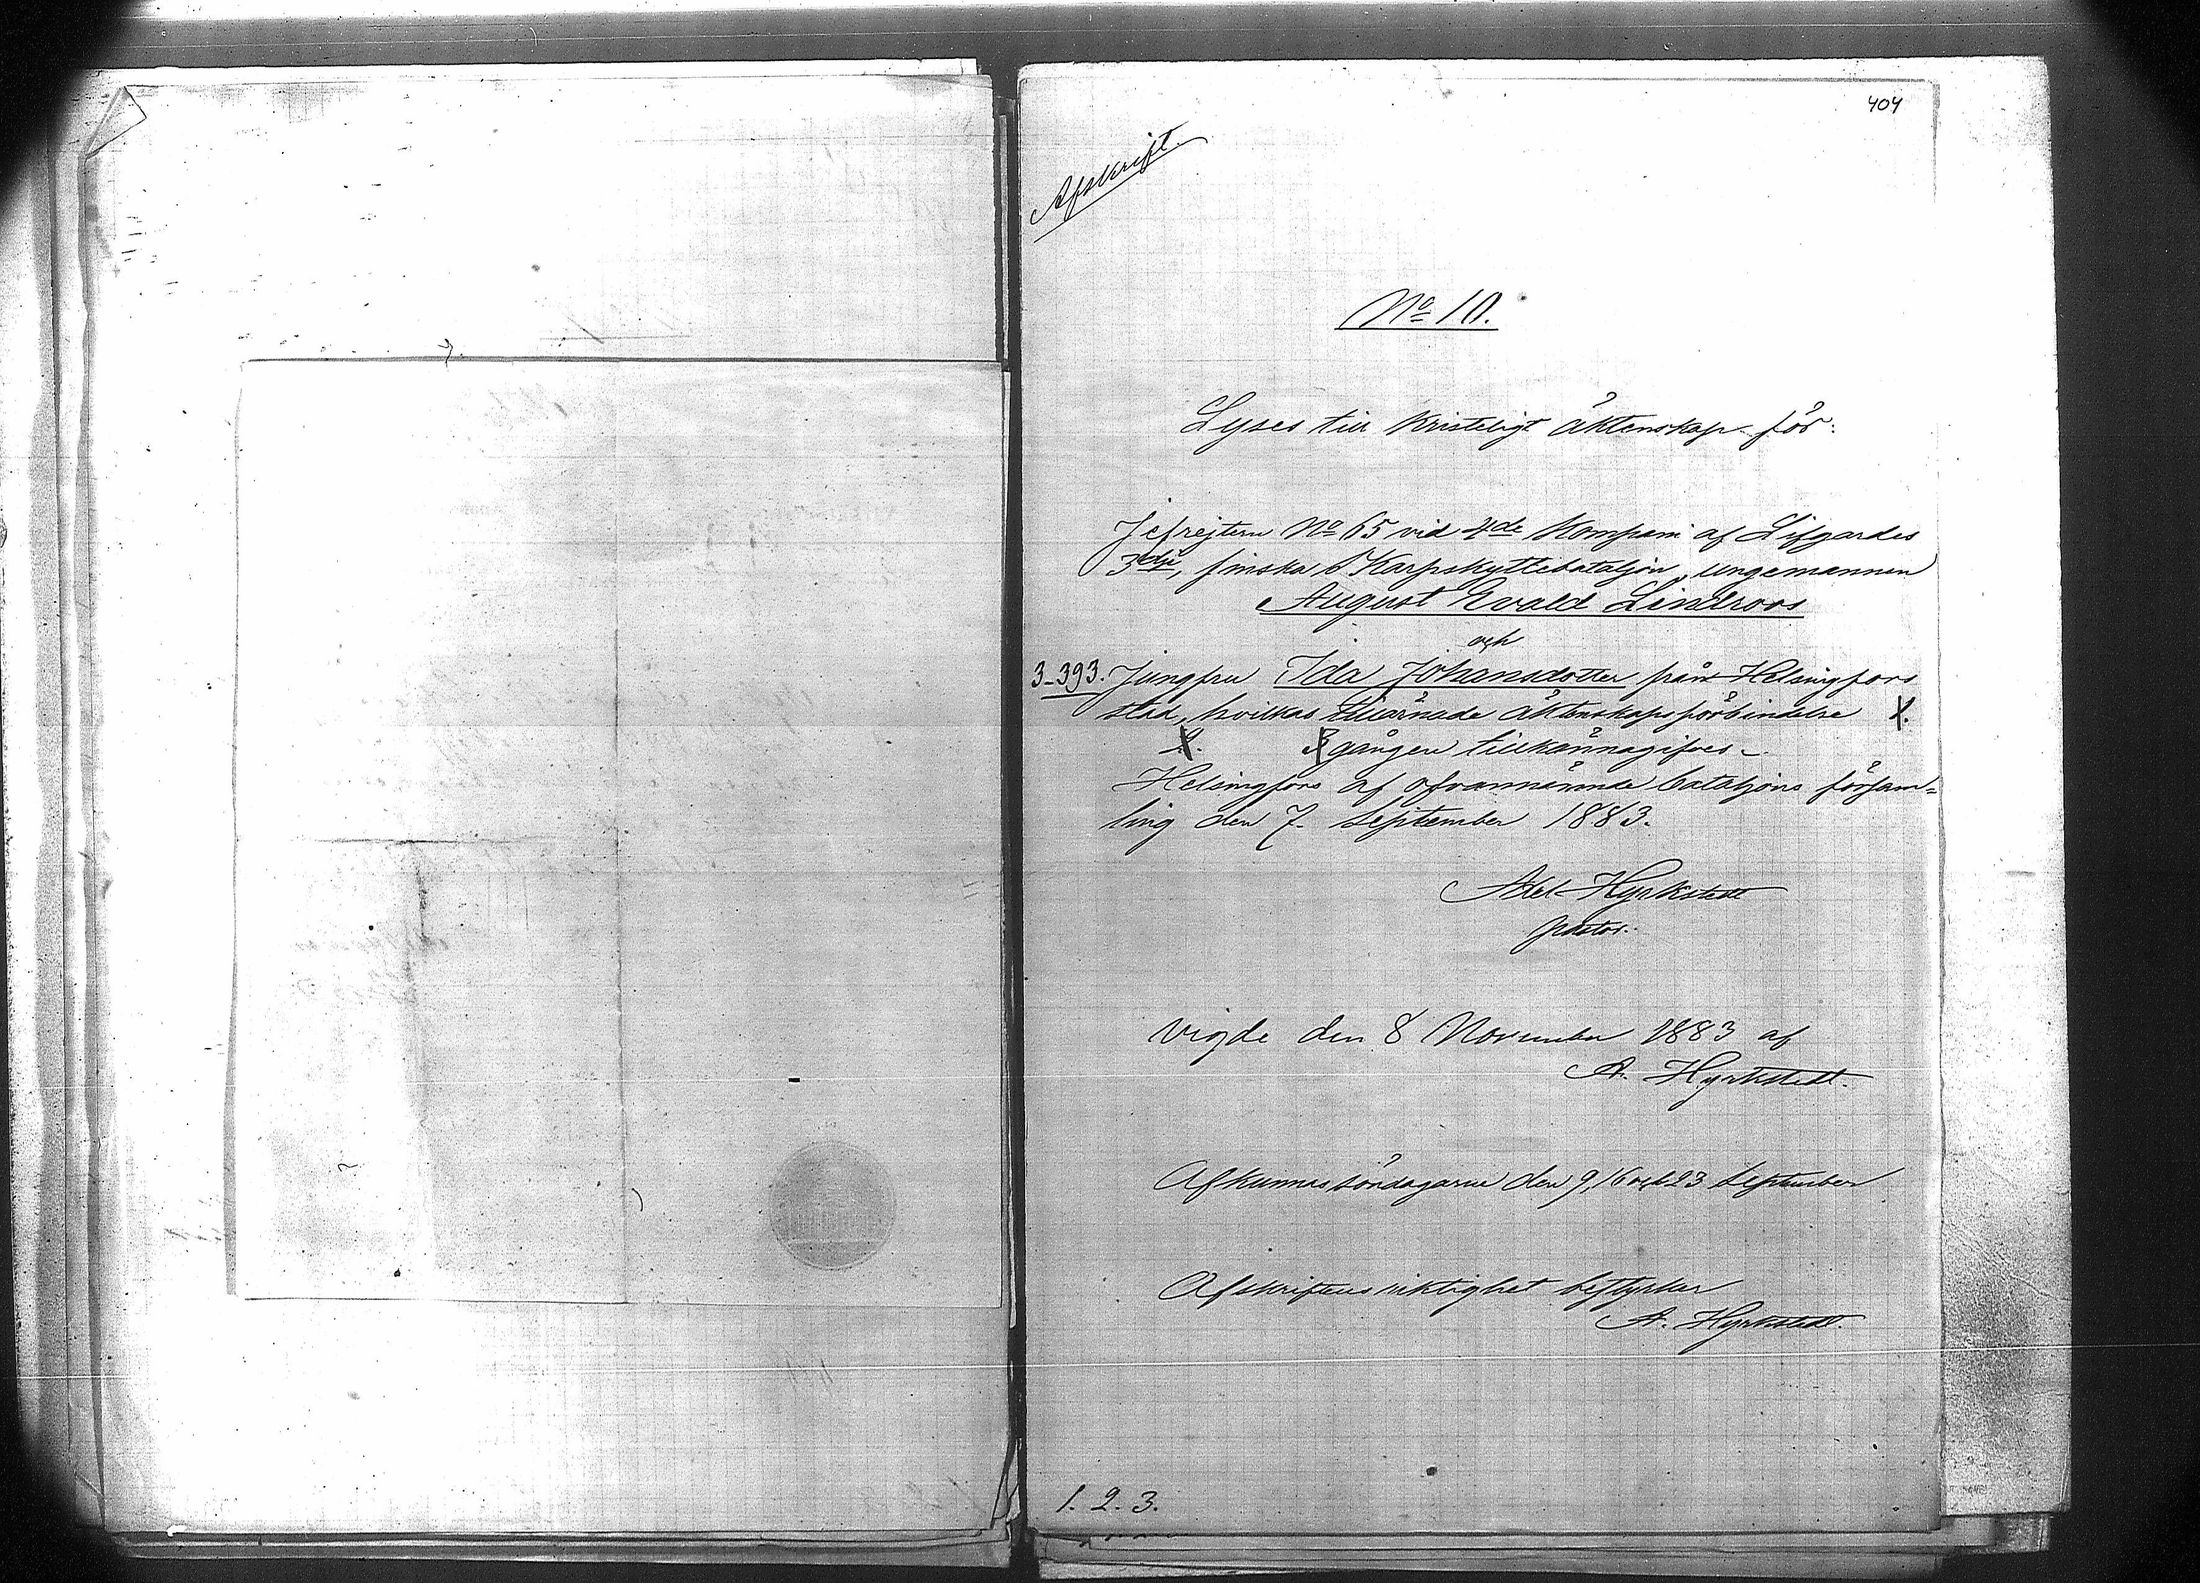 404
Afskrift.
No 10.
Lyses till kristeligt äktenskap för:
Jefrejtern No 65 vid 4de Kompani af Lifgardes
3dje, finska Skarpskyttebataljon, ungemannen
August Evald Lindroos
och
3-393. Jungfru Ida Johansdotter från Helsingfors
stad, hvilkas tillärnade äktenskapsförbindelse 1.
2. 3 gången tillkännagifves –
Helsingfors af ofvannämnde bataljons församˍ
ling den 7. September 1883.
Axel Hyrkstedt
pastor.
Vigde den 8 November 1883 af
A. Hyrkstedt.
Afkunnas söndagarne den 9, 16 och 23 September
Afskriftens riktighet bestyrker
A. Hyrkstedt.
1. 2. 3.